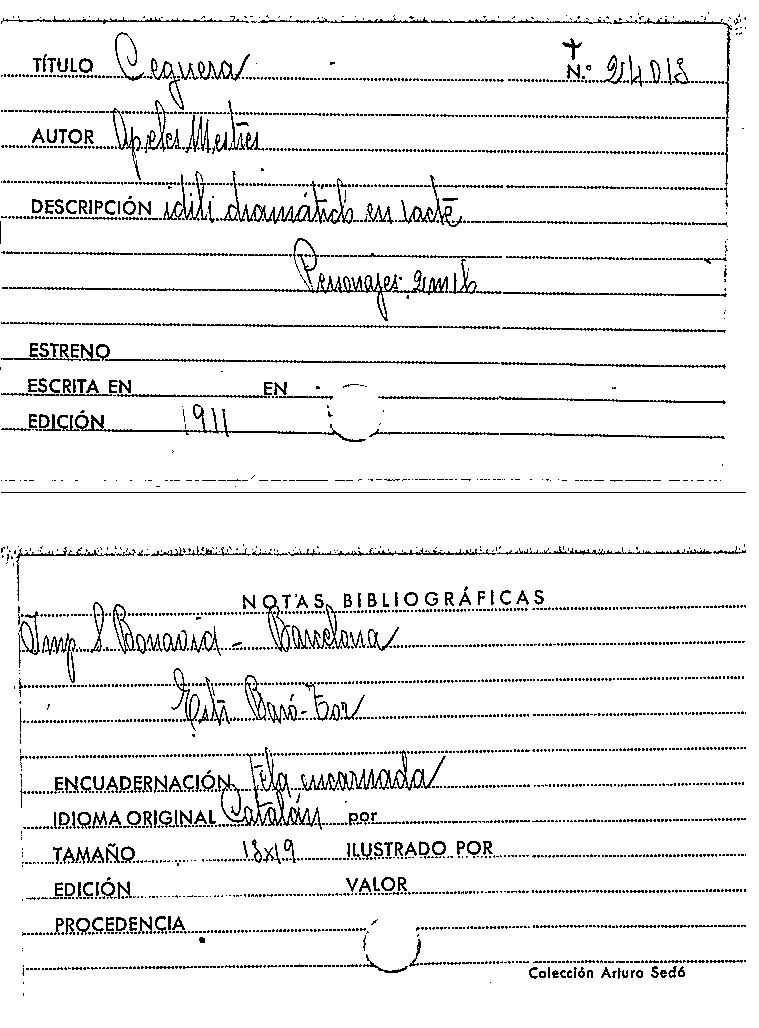 TÍTULO Ceguera
N.º 24018
AUTOR Apeles Mestres
DESCRIPCIÓN idili dramátich en 1 acte
Personajes: 2m 1h
ESTRENO
ESCRITA EN EN
EDICIÓN 1911
NOTAS BIBLIOGRÁFICAS
Imp S Bonavia - Barcelona
Baró-
ENCUADERNACIÓN tela encarnada
IDIOMA ORIGINAL Catalán por
TAMAÑO 13x19 ILUSTRADO POR
EDICIÓN VALOR
PROCEDENCIA
Colección Arturo Sedó